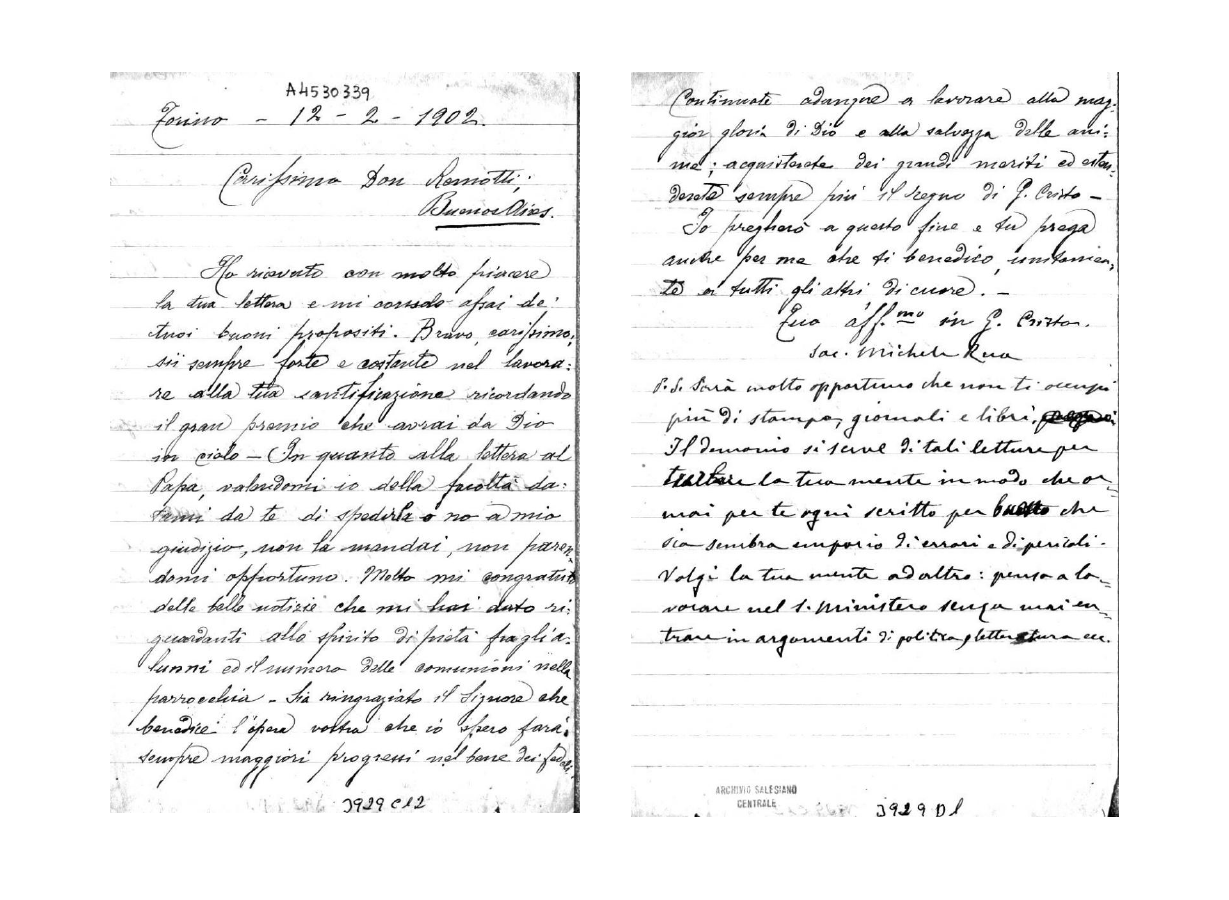 A4530339
Torino - 12 - 2 - 1902.
Carissimo Don Remotti;
Buenos Aires.
Ho ricevuto con molto piacere
la tua lettera e mi consolo assai de'
tuoi buoni propositi. Bravo, carissimo,
sii sempre forte e costante nel lavora:
re alla tua santificazione ricordando
il gran premio che avrai da Dio
in cielo - In quanto alla lettera al
Papa, valendomi io della facoltà da:
tami da te di spedirla o no a mio
giudizio, non la mandai, non paren:
domi opportuno. Molto mi congratulo
delle belle notizie che mi hai dato ri:
guardanti allo spirito di pietà fra gli a:
lunni ed il numero delle comunioni nella
parrocchia - Sia ringraziato il Signore che
benedice l'opera vostra che io spero farà
sempre maggiori progressi nel bene dei fedeli.
3929 C12
Continuate adunque a lavorare alla mag:
gior gloria di Dio e alla salvezza delle ani:
me; acquisterete dei grandi meriti ed esten:
derete sempre più il Regno di G. Cristo -
Io pregherò a questo fine e tu prega
anche per me che ti benedico, unitamen:
te a tutti gli altri di cuore. -
Tuo aff.mo in G. Cristo.
Sac. Michele Rua
P. S. Sarà molto opportuno che non ti occupi
più di stampa, giornali e libri.
Il demonio si serve di tali letture per
la tua mente in modo che or=
mai per te ogni scritto per buono che
sia sembra emporio di errori e di pericoli.
Volgi la tua mente ad altro: pensa a la=
vorare nel S. Ministero senza mai en=
trare in argomenti di politica, letteratura ecc.
ARCHIVIO SALESIANO
CENTRALE
3929 D1